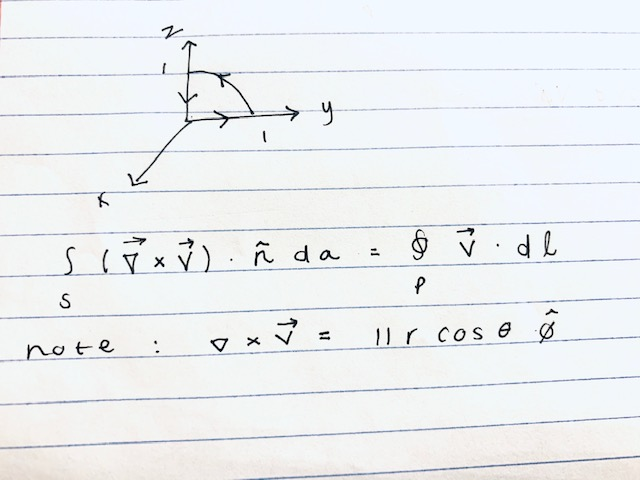 z
1
y
1
x
∫ (∇⃗ × V⃗) · n̂ da = ∮ V⃗ · dl
S P
note : ∇ × V⃗ = 11 r cos θ φ̂